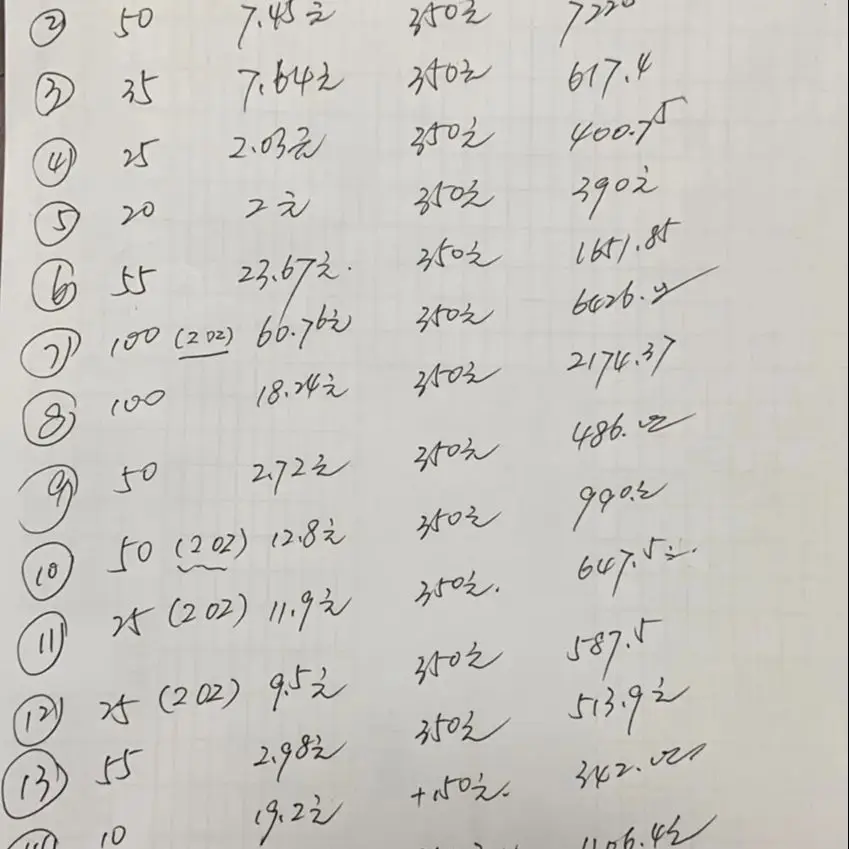 ② 50 7.45元 350元
③ 35 7.64元 350元 617.4
④ 25 2.03元 350元 400.75
⑤ 20 2元 350元 390元
⑥ 55 23.67元. 350元 1651.85
⑦ 100 (2 OZ) 60.76元 350元 6426.00
⑧ 100 18.24元 350元 2174.37
⑨ 50 2.72元 350元 486.00
⑩ 50 (2 OZ) 12.8元 350元 990.元
⑪ 25 (2 OZ) 11.9元 350元. 647.5元.
⑫ 25 (2 OZ) 9.5元 350元 587.5
⑬ 55 2.98元 350元 513.9元
10 19.2元 +150元. 342.00
1106.4元